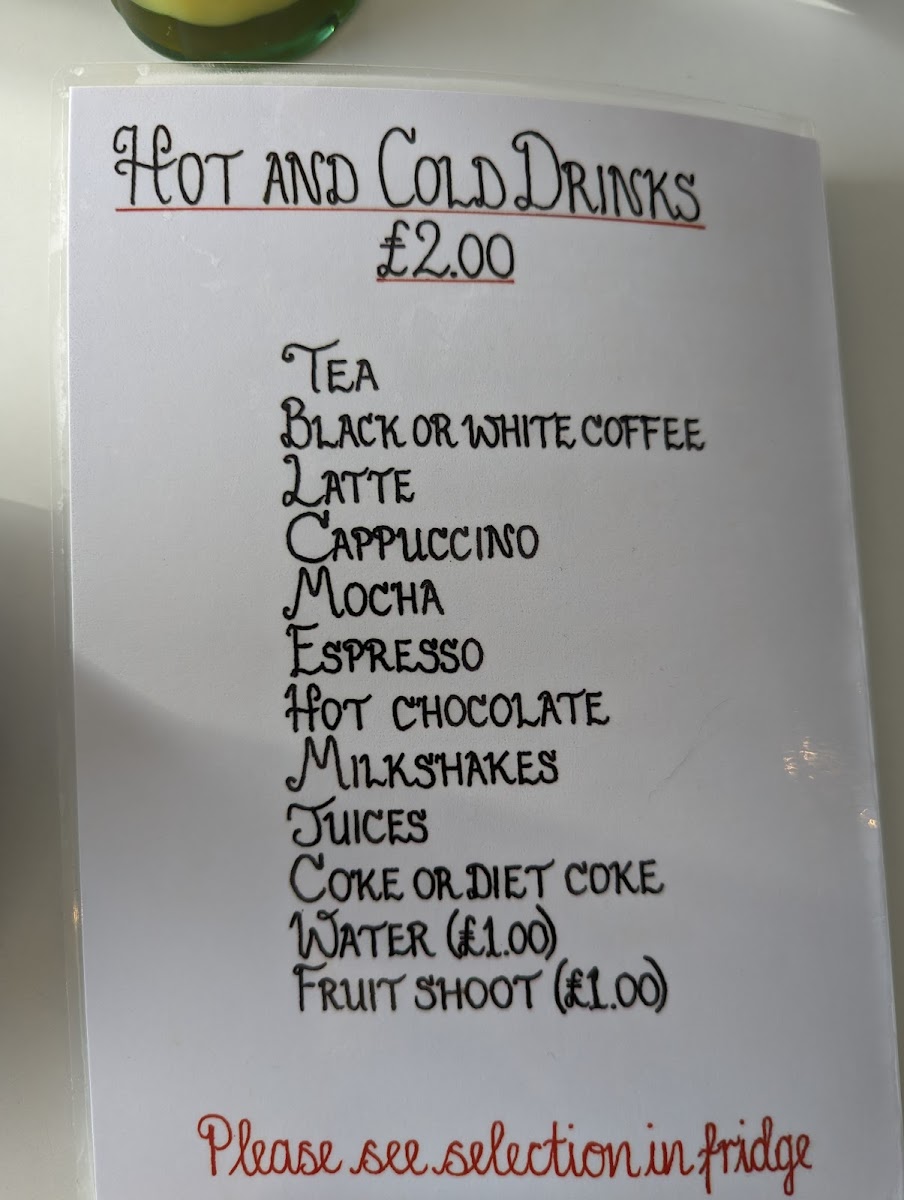 HOT AND COLD DRINKS
£2.00
TEA
BLACK OR WHITE COFFEE
LATTE
CAPPUCCINO
MOCHA
ESPRESSO
HOT CHOCOLATE
MILKSHAKES
JUICES
COKE OR DIET COKE
WATER (£1.00)
FRUIT SHOOT (£1.00)
Please see selection in fridge